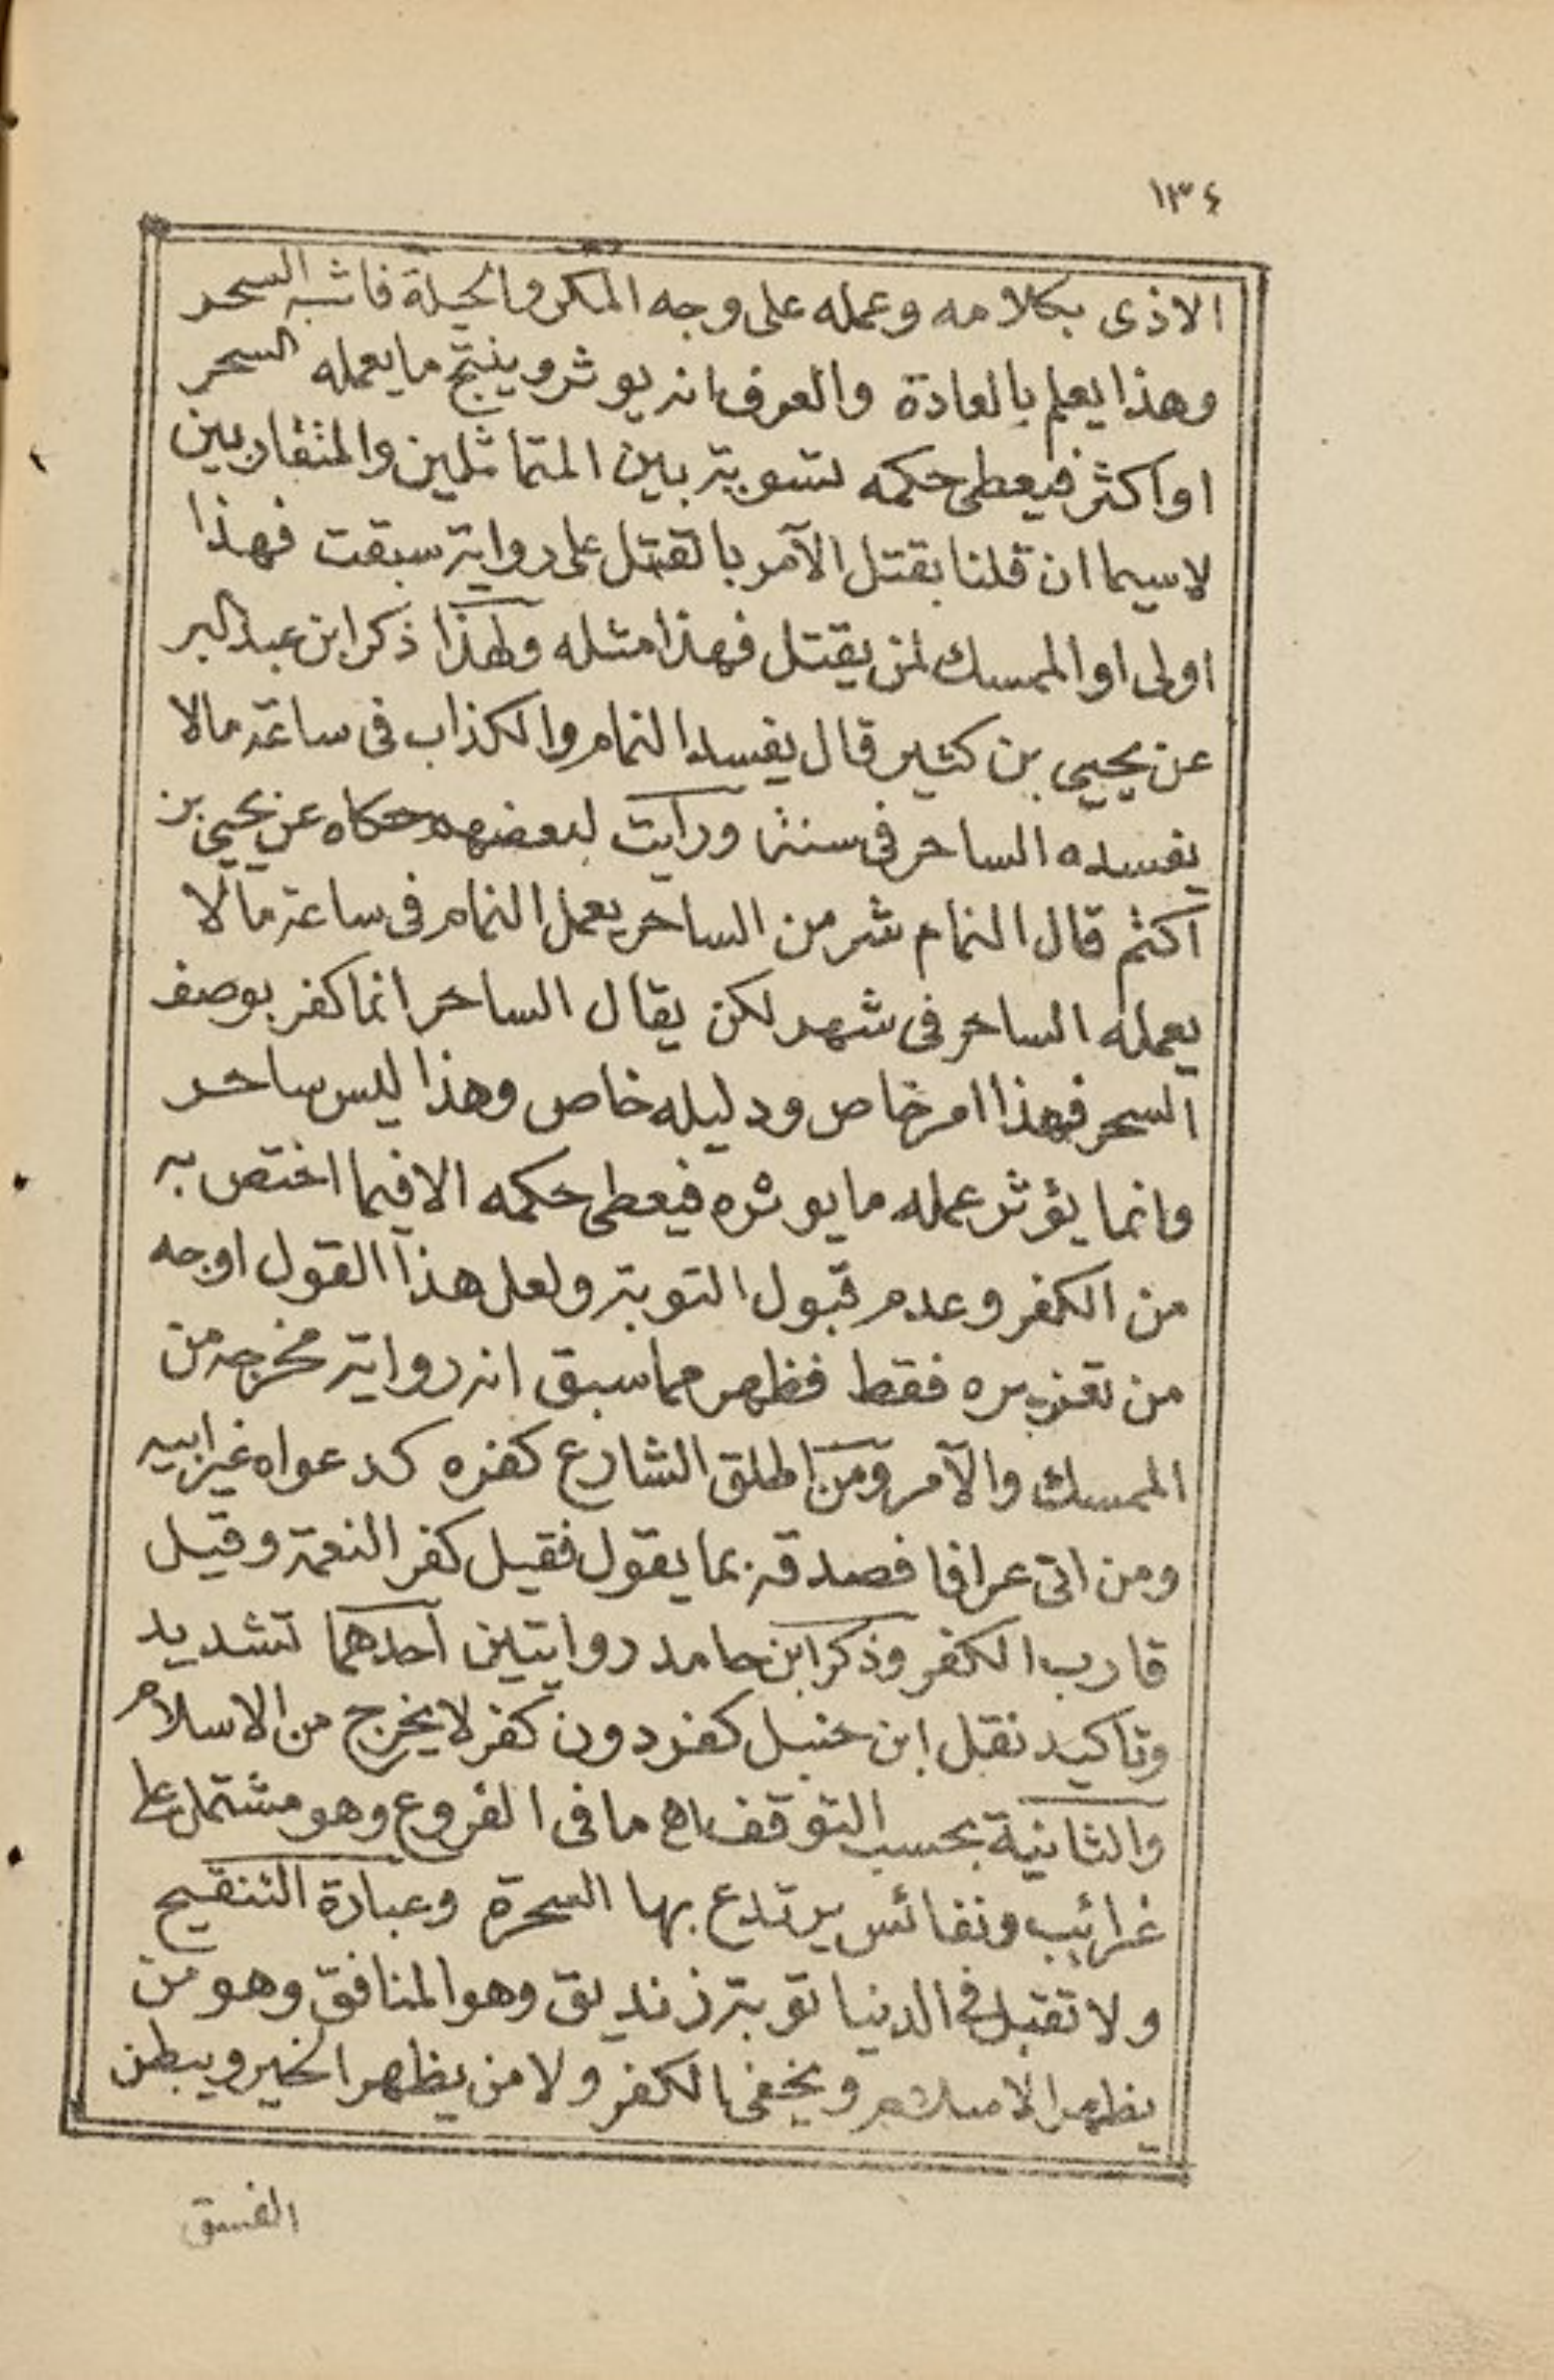 ١٣٤
الاذى بكلامه وعمله على وجه المكر والحيلة فاشبه السحر
وهذا يعلم بالعادة والعرف انه يوثر وينتج ما يعمله السحر
او اكثر فيعطى حكمه تسوية بين المتماثلين والمتقاربين
لاسيما ان قلنا بقتل الآمر بالقتل على رواية سبقت فهذا
اولى او الممسك لمن يقتل فهذا مثله ولهذا ذكر ابن عبد البر
عن يحيى بن كثير قال يفسد النمام والكذاب فى ساعة مالا
يفسده الساحر فى سنة ورايت لبعضهم حكاه عن يحيى بن
اكثم قال النمام شر من الساحر يعمل النمام فى ساعة مالا
يعمله الساحر فى شهر لكن يقال الساحر انما كفر بوصف
السحر فهذا امر خاص ودليله خاص وهذا ليس ساحر
وانما يؤثر عمله ما يوثره فيعطى حكمه الا فيما اختص به
من الكفر وعدم قبول التوبة ولعل هذا القول اوجه
من تعزيره فقط فظهر مما سبق انه رواية مخرجة من
الممسك والآمر ومن اطلق الشارع كفره كدعواه غير ابيه
ومن اتى عرافا فصدقه بما يقول فقيل كفر النعمة وقيل
قارب الكفر وذكر ابن حامد روايتين احدهما تشديد
وتاكيد نقل ابن حنبل كفر دون كفر لا يخرج من الاسلام
والثانية بحسب التوقف اه ما فى الفروع وهو مشتمل على
غرائب ونفائس يرتدع بها السحرة وعبارة التنقيح
ولا تقبل فى الدنيا توبة زنديق وهو المنافق وهو من
يظهر الاسلام ويخفى الكفر ولا من يظهر الخير ويبطن
الفسق